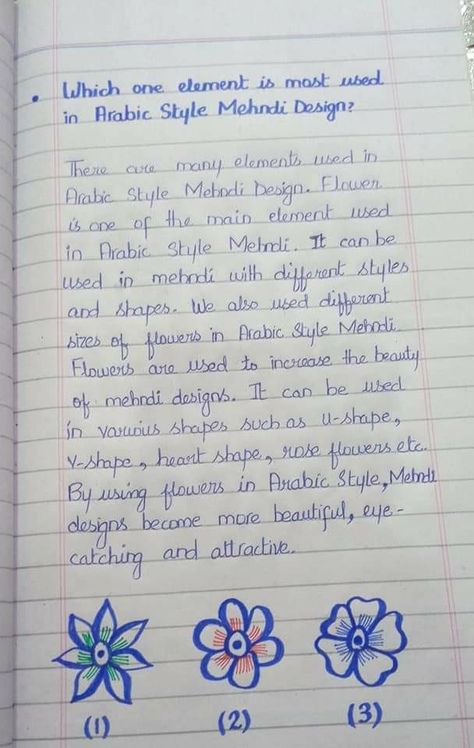 • Which one element is most used
in Arabic Style Mehndi Design?
There are many elements used in
Arabic Style Mehndi Design. Flower
is one of the main element used
in Arabic Style Mehndi. It can be
used in mehndi with different styles
and shapes. We also used different
sizes of flowers in Arabic Style Mehndi.
Flowers are used to increase the beauty
of mehndi designs. It can be used
in various shapes such as U-shape,
V-shape, heart shape, rose flowers etc.
By using flowers in Arabic Style, Mehndi
designs become more beautiful, eye-
catching and attractive.
(1) (2) (3)